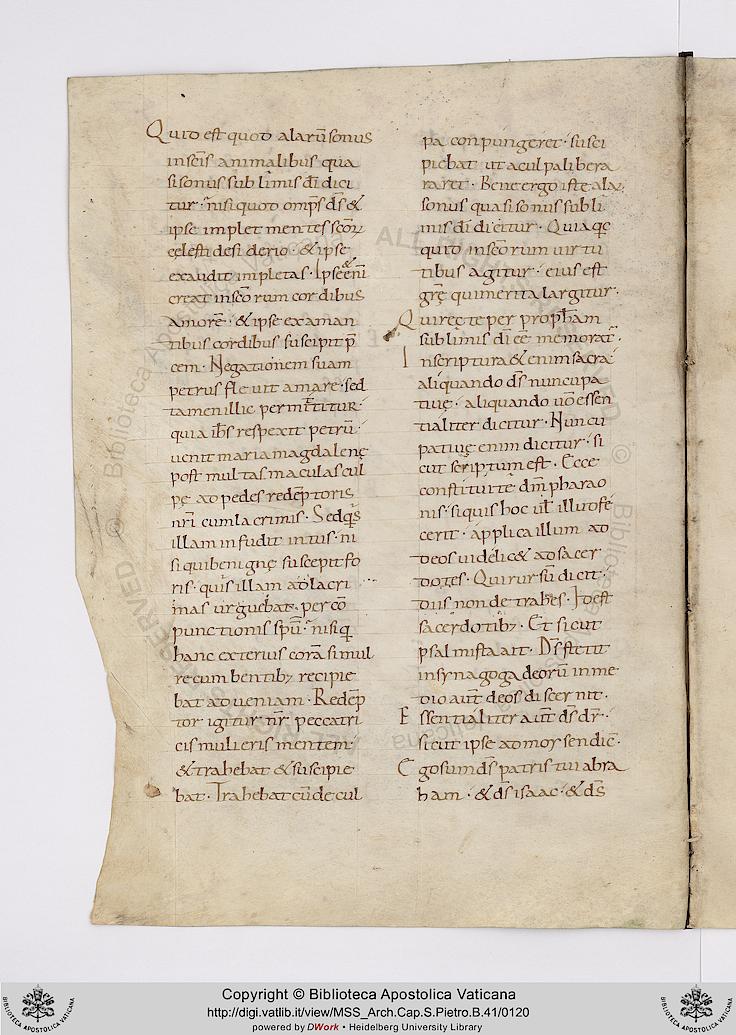 Quid est quod alarū sonus
inscīs animalibus qua
si sonus sublimis dī dici
tur · nisi quod omps ds̄ &
ipse implet mentes scōꝝ
cęlesti desiderio · & ipse
exaudit impletas · Ipse & enī
creat inscōrum cordibus
amorē · & ipse ex aman
tibus cordibus suscipit p̄
cem · Negationem suam
petrus flevit amare · sed
tamen illic permittitur
quia ihs̄ respexit petrū ·
venit maria magdalenę
post multas maculas cul
pę ad pedes redēptoris
nr̄i cum lacrimis · Sed q̄s
illam infudit intus · ni
si qui benignę suscepit fo
ris · quis illam ad lacri
mas urguebat · per cō
punctionis sp̄ū · nisi q
hanc exterius corā simul
recumbentibꝫ recipie
bat ad veniam · Redēp
tor igitur nr̄ peccatri
cis mulieris mentem
& trahebat & suscipie
bat · Trahebat cū de cul
pa conpungeret · susci
piebat ut a culpa libera
raret · Bene ergo iste ala
sonus quasi sonus subli
mis dī dicitur · Quia qc
quid inscōrum virtu
tibus agitur · eius est
gr̄ę qui merita largitur ·
Qui rectę per prophām
sublimis dī cē memorat̄ ·
In scriptura & enim sacra
aliquando ds̄ nuncupa
tivę · aliquando uō essen
tialiter dicitur · Nuncu
pativę enim dicitur · si
cut scriptum est · Ecce
constitui te dm̄ pharao
nis · si quis hoc ul̄ illud fe
cerit · applica illum ad
deos videlic& ad sacer
dotes · Qui rursū dicit ·
diis non detrahes · Id est
sacerdotibꝫ · Et sicut
psalmista ait · Ds̄ stetit
in synagoga deorū in me
dio aut̄ deos discernit ·
Essentialiter aut̄ ds̄ dr̄ ·
sicut ipse ad moysen dic̄ ·
Ego sum ds̄ patris tui abra
ham · & ds̄ isaac · & ds̄
Copyright © Biblioteca Apostolica Vaticana
http://digi.vatlib.it/view/MSS_Arch.Cap.S.Pietro.B.41/0120
powered by DWork • Heidelberg University Library